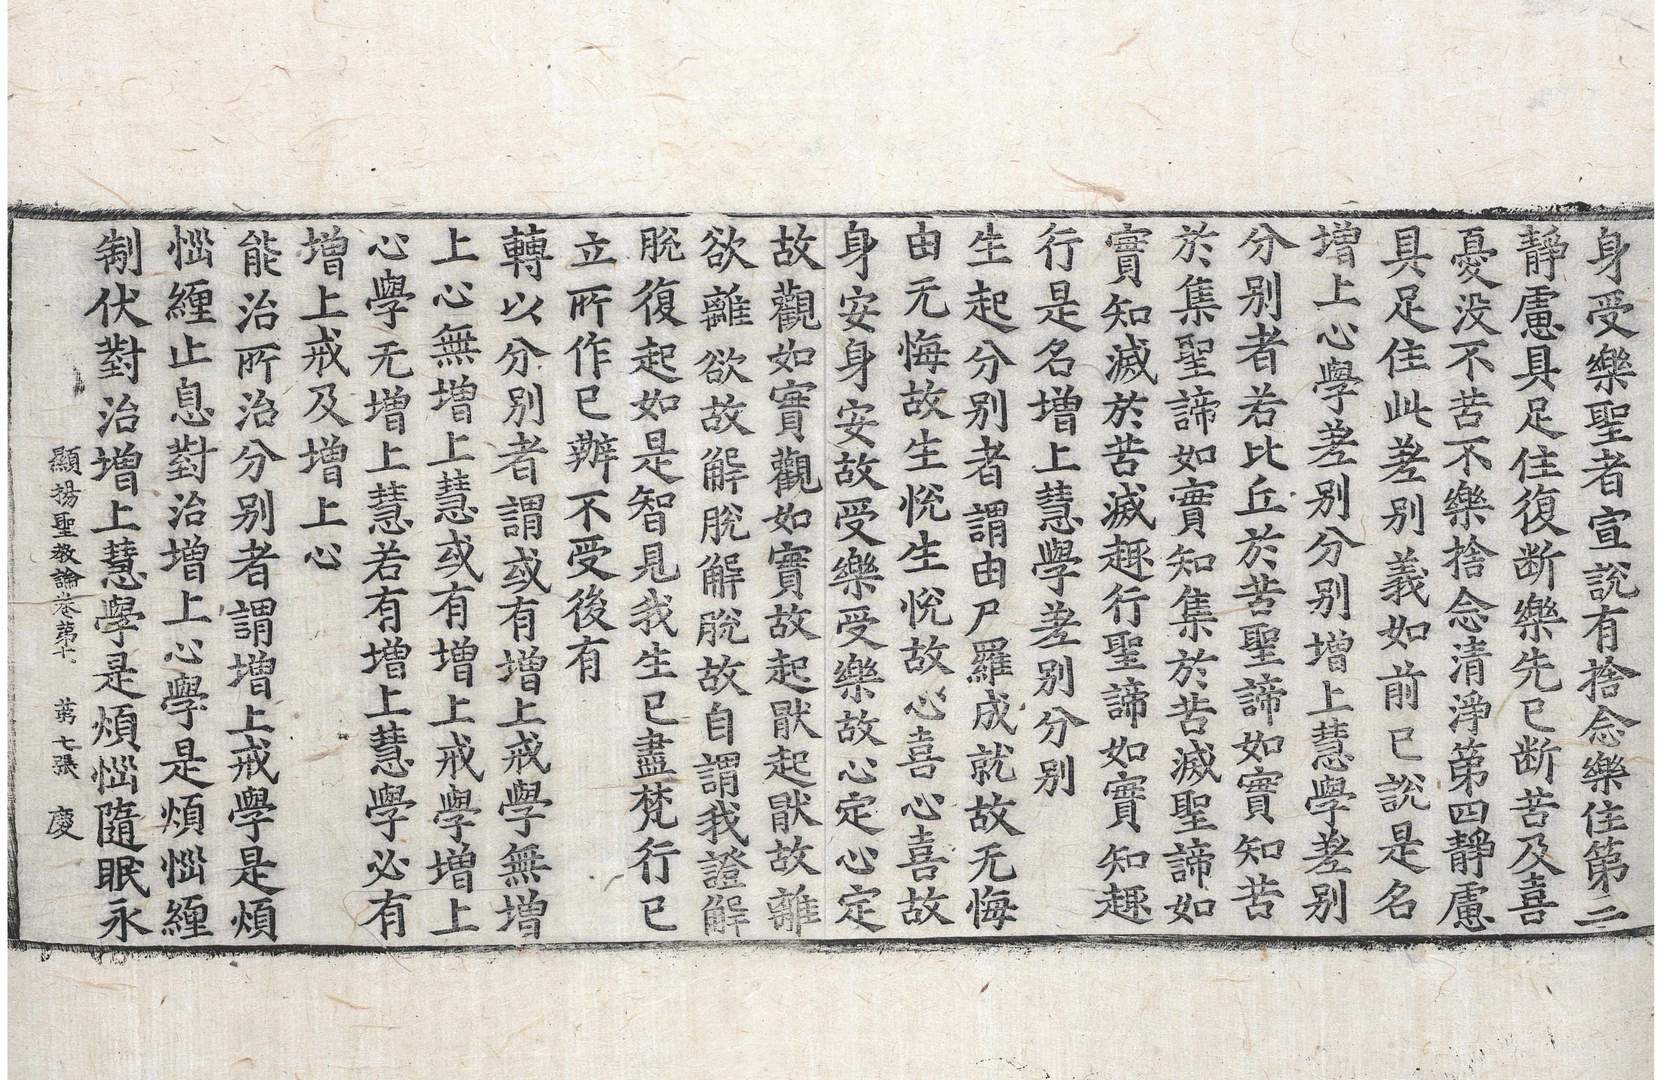 身受樂聖者宣說有捨念樂住第三
靜慮具足住復断樂先已断苦及喜
憂没不苦不樂捨念清淨第四靜慮
具足住此差别義如前已說是名
增上心學差别分别增上慧學差别
分别者若比丘於苦聖諦如實知苦
於集聖諦如實知集於苦滅聖諦如
實知滅於苦滅趣行聖諦如實知趣
行是名增上慧學差别分别
生起分别者謂由尸羅成就故无悔
由无悔故生恱生恱故心喜心喜故
身安身安故受樂受樂故心定心定
故觀如實觀如實故起猒起猒故離
欲離欲故解脫解脫故自謂我證解
脫復起如是智見我生已盡梵行已
立所作已辦不受後有
轉以分别者謂或有增上戒學無增
上心無增上慧或有增上戒學增上
心學无增上慧若有增上慧學必有
增上戒及增上心
能治所治分别者謂增上戒學是煩
惱纏止息對治增上心學是煩惱纏
制伏對治增上慧學是煩惱隨眠永
顯揚聖教論卷第十 第七張 慶